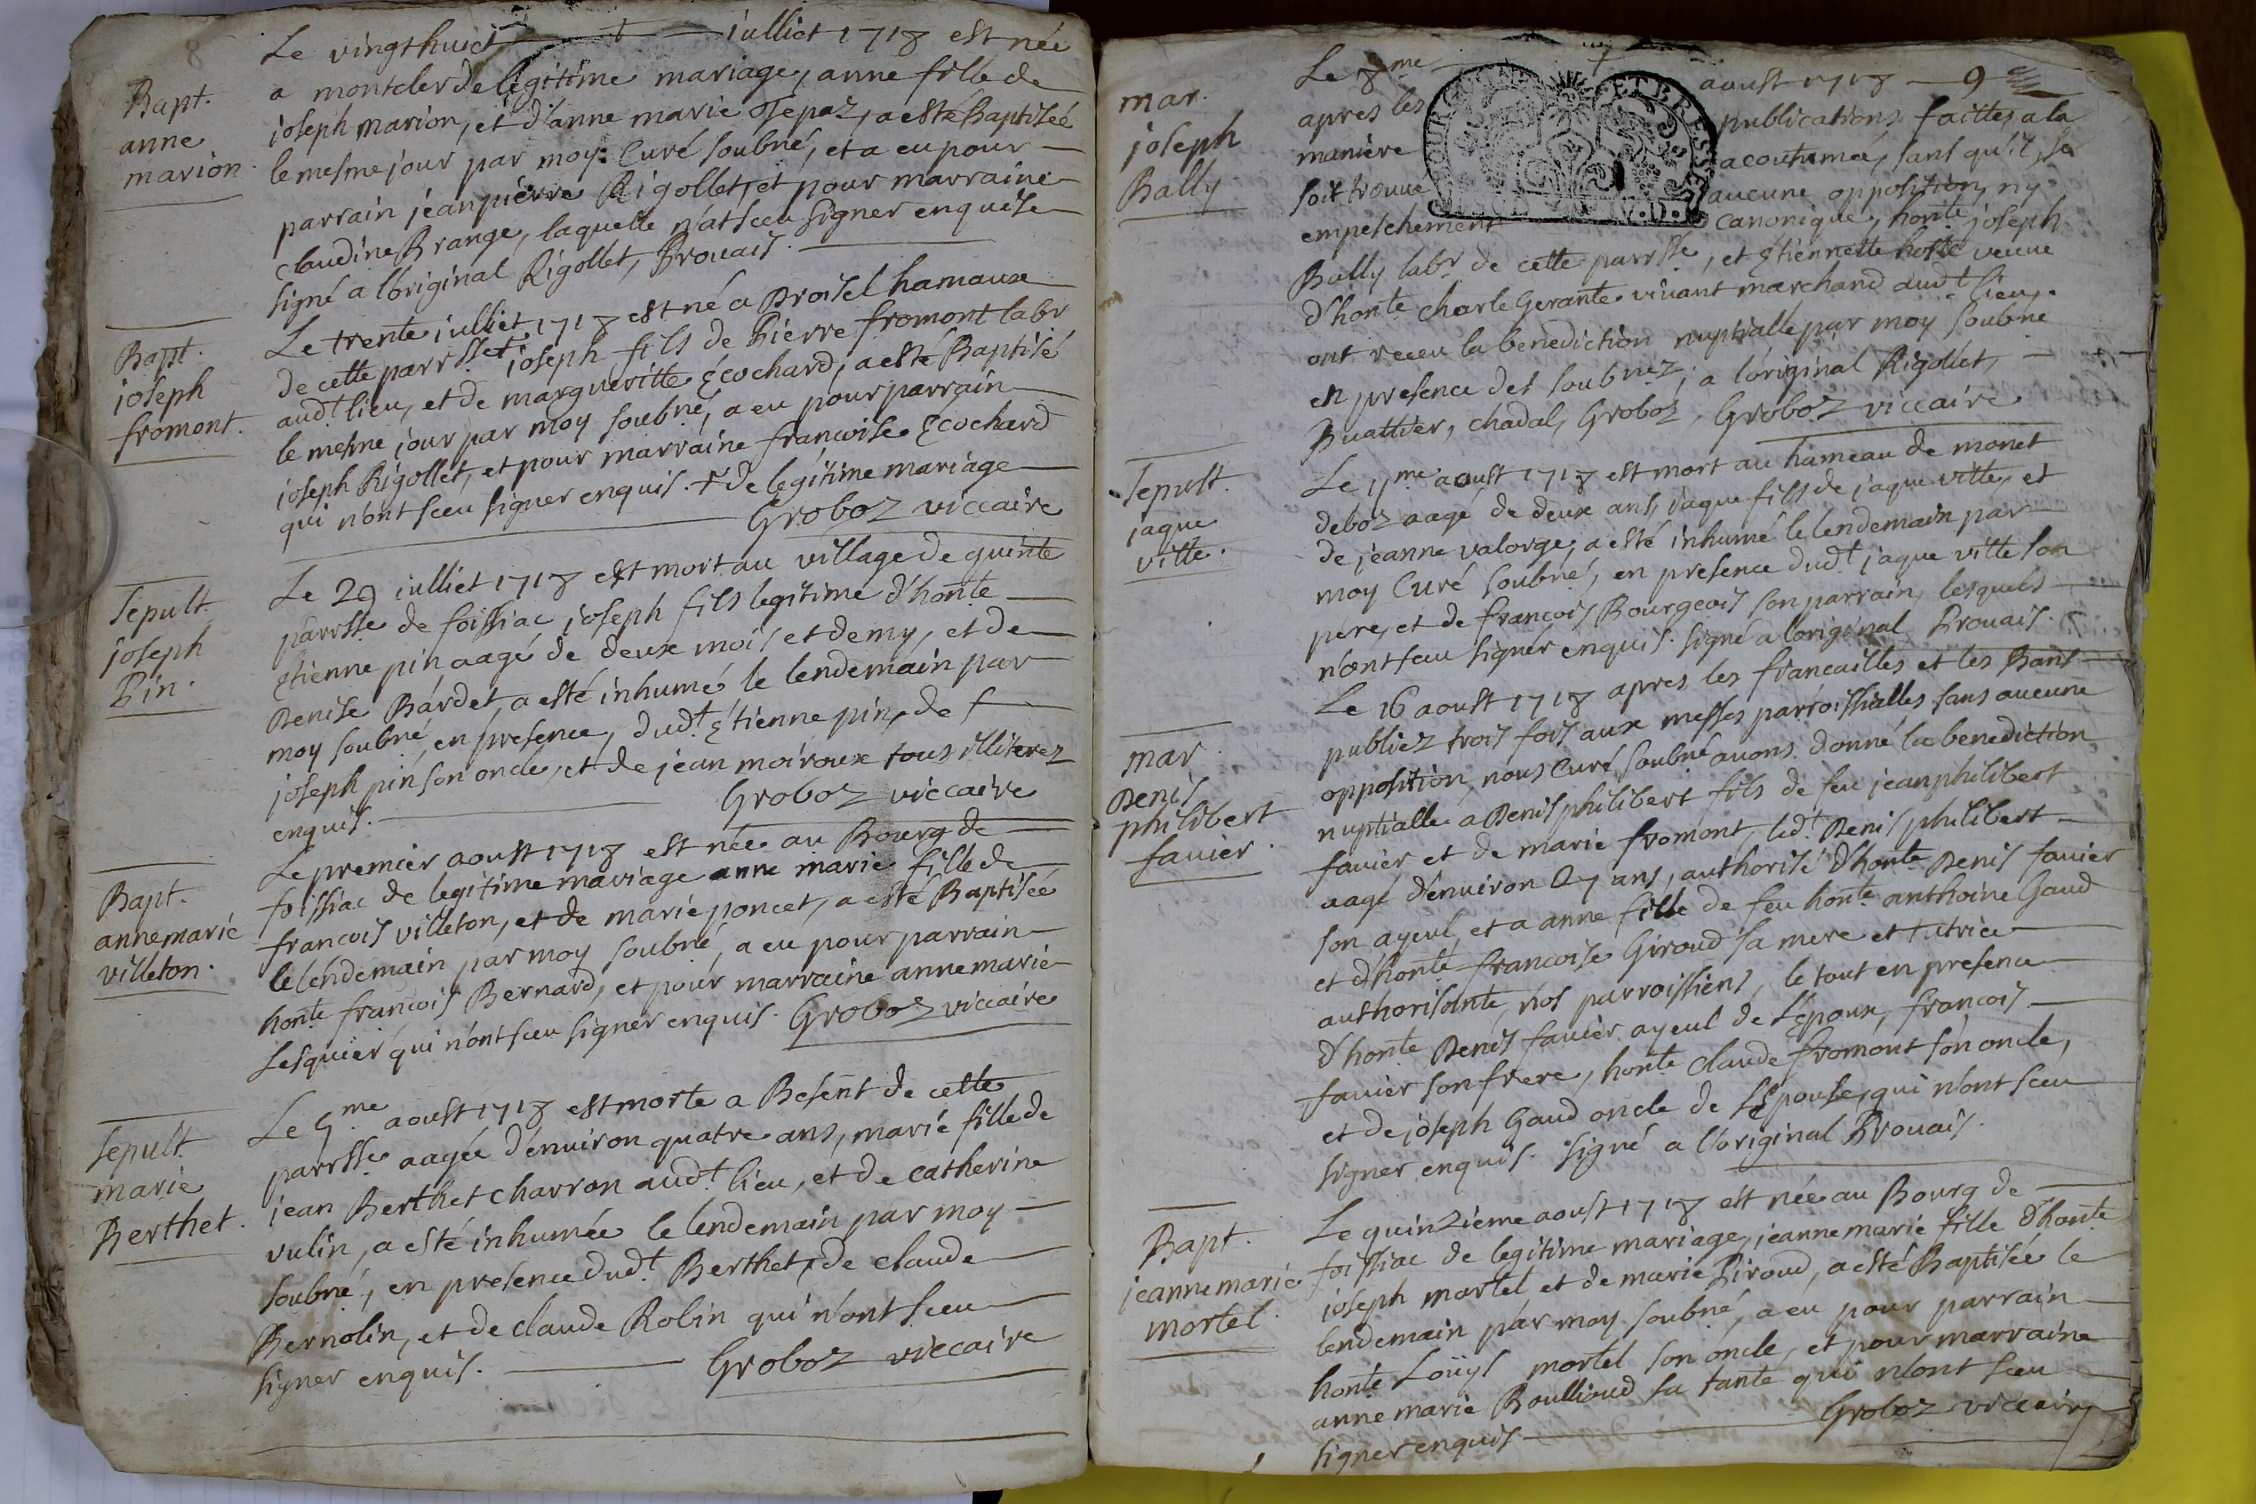 8
Le vingthuict julliet 1718 est née
Bapt.
anne
marion.
a montcler de legitime mariage, anne fille de
joseph marion, et d'anne marie Tepaz, a esté Baptisée
le mesme jour par moy Curé soubné, et a eu pour
parrain jean pierre Rigollet, et pour marraine
claudine Brange, laquelle n'at sceu signer enquise
signé a l'original Rigollet, Brouais.
Bapt.
joseph
fromont.
Le trente julliet 1718 est né a Droisel hamaux
de cette parrsse + joseph fils de Pierre fromont labr
audt. lieu, et de margueritte Ecochard, a esté Baptisé
le mesme jour par moy soubné, a eu pour parrain
joseph Rigollet, et pour marraine francoise Ecochard
qui n'ont sceu signer enquis. + de legitime mariage
Groboz viccaire
Sepult.
joseph
Pin.
Le 29 julliet 1718 est mort au village de quinte
parrsse de foissiac, joseph fils legitime d'honte
Etienne pin aagé de deux mois et demy, et de
Denise Bardet, a esté inhumé le lendemain par
moy soubné, en presence, dudt. Etienne pin, de
joseph pin son oncle, et de jean moiroux tous illiterez
enquis.
Groboz viccaire
Bapt.
anne marie
villeton.
Le premier aoust 1718 est née au Bourg de
foissiac de legitime mariage anne marie fille de
francois villeton, et de marie poncet, a esté Baptisée
le lendemain par moy soubné, a eu pour parrain
honte francois Bernard, et pour marraine anne marie
Lesquier qui n'ont sceu signer enquis. Groboz viccaire
Sepult.
marie
Berthet.
Le 5me aoust 1718 est morte a Besent de cette
parrsse aagée d'environ quatre ans, marie fille de
jean Berthet charron audt. lieu, et de catherine
vulin, a esté inhumée le lendemain par moy
soubné, en presence dudt. Berthet, de claude
Bernolin, et de claude Robin qui n'ont sceu
signer enquis.
Groboz viccaire
mar.
joseph
Bally
Le 8me aoust 1718 9
apres les publications faittes a la
maniere acoutumée, sans qu'il se
soit trouue aucune opposition, ny
empeschement canonique, honte joseph
BOURG ET BRESSE
Bally labr de cette parrsse, et Etiennette hoste veuve
d'honte charle Gerante vivant marchand audt lieu,
ont receu la benediction nuptialle par moy soubné
en presence des soubnez, a l'original Rigollet,
Buattier, chadal, Groboz, Groboz viccaire
Sepult.
jaque
ville.
Le 11me aoust 1718 est mort au hameau de monet
deboz aagé de deux ans, jaque fils de jaque ville, et
de jeanne valorge, a esté inhumé le lendemain par
moy Curé soubné, en presence dudt jaque ville son
pere, et de francois Bourgeois son parrain, lesquels
n'ont sceu signer enquis. signé a l'original Brouais.
mar.
Denis
philibert
favier.
Le 16 aoust 1718 apres les francailles et les Bans
publiez trois fois aux messes parroissialles sans aucune
opposition, nous Curé soubné avons donné la benediction
nuptialle a Denis philibert fils de feu jean philibert
favier et de marie fromont, ledt. Denis philibert
aagé d'environ 27 ans, authorisé d'honte Denis favier
son ayeul, et a anne fille de feu honte anthoine Gaud
et d'honte francoise Giroud sa mere et tutrice
authorisante, nos parroissiens, le tout en presence
d'honte Denis favier ayeul de L'Epoux, francois
favier son frere, honte claude fromont son oncle,
et de joseph Gaud oncle de L'Epouse, qui n'ont sceu
signer enquis. signé a l'original Brouais.
Bapt.
jeanne marie
mortel.
Le quinzieme aoust 1718 est née au Bourg de
foissiac de legitime mariage, jeanne marie fille d'honte
joseph mortel et de marie Piroud, a esté Baptisée le
lendemain par moy soubné, a eu pour parrain
honte Loüys mortel son oncle, et pour marraine
anne marie Boullioud sa tante qui n'ont sceu
signer enquis
Groboz viccaire